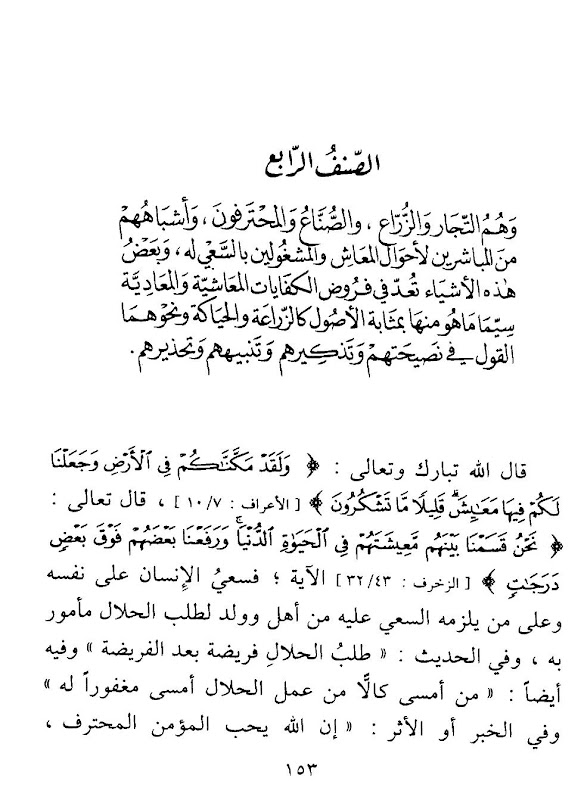 الصّنفُ الرّابع
وَهُمُ التّجَار وَالزُّرّاع ، والصُّنّاعُ وَالمُحْتَرفونَ ، وَأشبَاهُهُم
منَ المبَاشرين لأحوَال المعَاش وَالمشغُولين بالسَّعْي له ، وَبَعْضُ
هٰذه الأشيَاء تُعدّ في فرُوض الكفَايات المعَاشيّة وَالمعَاديَّة
سيَّمَا مَا هُو منهَا بمثَابة الأصُول كالزّراعَة وَالحيَاكة وَنحوهمَا
القول في نَصيحَتهمْ وَتذكيرهم وَتنبيههم وَتحذيرهم .
قال الله تبارك وتعالى : ﴿ وَلَقَدْ مَكَّنَّٰكُمْ فِي ٱلْأَرْضِ وَجَعَلْنَا
لَكُمْ فِيهَا مَعَٰيِشَۗ قَلِيلًا مَّا تَشْكُرُونَ ﴾ [ الأعراف : ١٠/٧ ] ، قال تعالى :
﴿ نَحْنُ قَسَمْنَا بَيْنَهُم مَّعِيشَتَهُمْ فِي ٱلْحَيَوٰةِ ٱلدُّنْيَاۚ وَرَفَعْنَا بَعْضَهُمْ فَوْقَ بَعْضٍ
دَرَجَٰتٍ ﴾ [ الزخرف : ٣٢/٤٣ ] الآية ؛ فسعيُ الإنسان على نفسه
وعلى من يلزمه السعي عليه من أهل وولد لطلب الحلال مأمور
به ، وفي الحديث : « طلبُ الحلالِ فريضة بعد الفريضة » وفيه
أيضاً : « من أمسى كالًّا من عمل الحلال أمسى مغفوراً له »
وفي الخبر أو الأثر : « إن الله يحب المؤمن المحترف ،
١٥٣